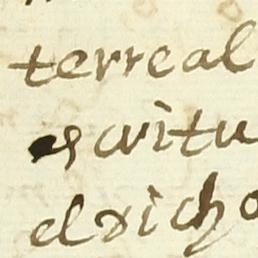 terreal
escritu
el dicho